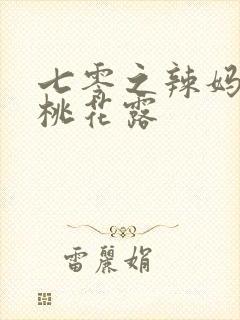 七零之辣妈
桃花露
雷丽娟